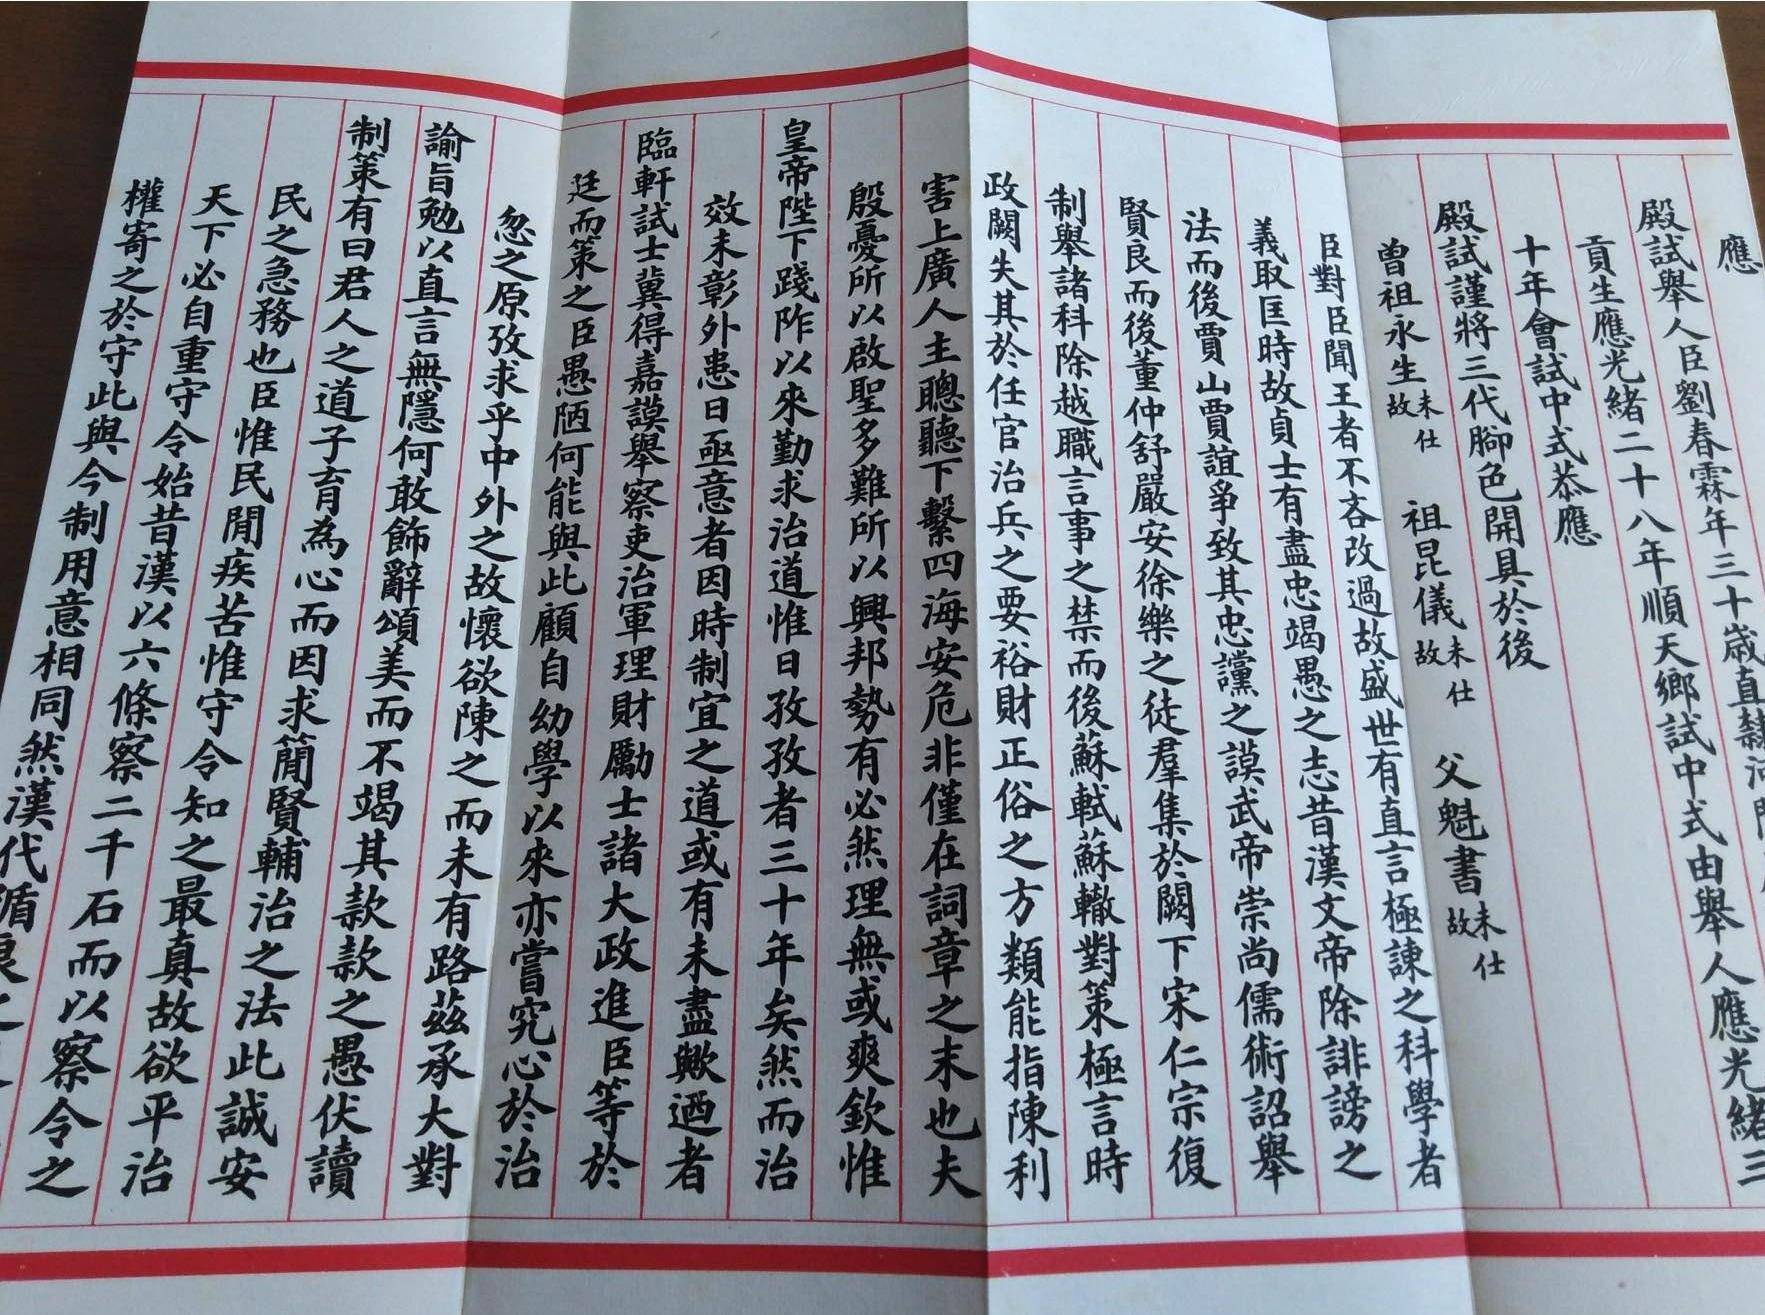 應
殿試舉人臣劉春霖年三十歲直隸河間
貢生應光緒二十八年順天鄉試中式由舉人應光緒三
十年會試中式恭應
殿試謹將三代腳色開具於後
曾祖永生未仕故　祖昆儀未仕故　父魁書未仕故
臣對臣聞王者不吝改過故盛世有直言極諫之科學者
義取匡時故貞士有盡忠竭愚之志昔漢文帝除誹謗之
法而後賈山賈誼爭致其忠讜之謨武帝崇尚儒術詔舉
賢良而後董仲舒嚴安徐樂之徒羣集於闕下宋仁宗復
制舉諸科除越職言事之禁而後蘇軾蘇轍對策極言時
政闕失其於任官治兵之要裕財正俗之方類能指陳利
害上廣人主聰聽下繫四海安危非僅在詞章之末也夫
殷憂所以啟聖多難所以興邦勢有必然理無或爽欽惟
皇帝陛下踐阼以來勤求治道惟日孜孜者三十年矣然而治
效未彰外患日亟意者因時制宜之道或有未盡歟迺者
臨軒試士冀得嘉謨舉察吏治軍理財勵士諸大政進臣等於
廷而策之臣愚陋何能與此顧自幼學以來亦嘗究心於治
忽之原攷求乎中外之故懷欲陳之而未有路茲承大對
諭旨勉以直言無隱何敢飾辭頌美而不竭其款款之愚伏讀
制策有曰君人之道子育為心而因求簡賢輔治之法此誠安
民之急務也臣惟民閒疾苦惟守令知之最真故欲平治
天下必自重守令始昔漢以六條察二千石而以察令之
權寄之於守此與今制用意相同然漢代循良